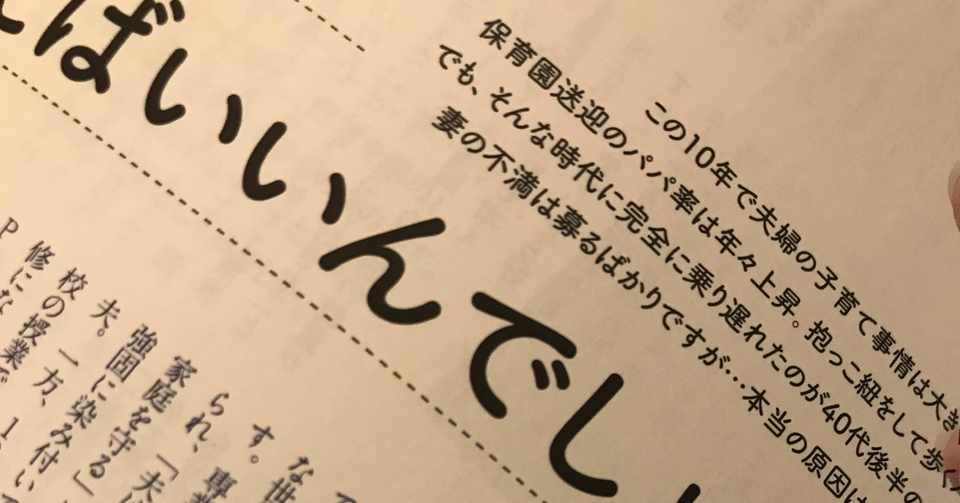 ばいいんでし
この10年で夫婦の子育て事情は大き
保育園送迎のパパ率は年々上昇。抱っこ紐をして歩
でも、そんな時代に完全に乗り遅れたのが40代後半の
妻の不満は募るばかりですが…本当の原因は
な世
す。
られ、専業
家庭を守る」
強固に染み付い
夫。「夫は
校の一方、
修に
授業で